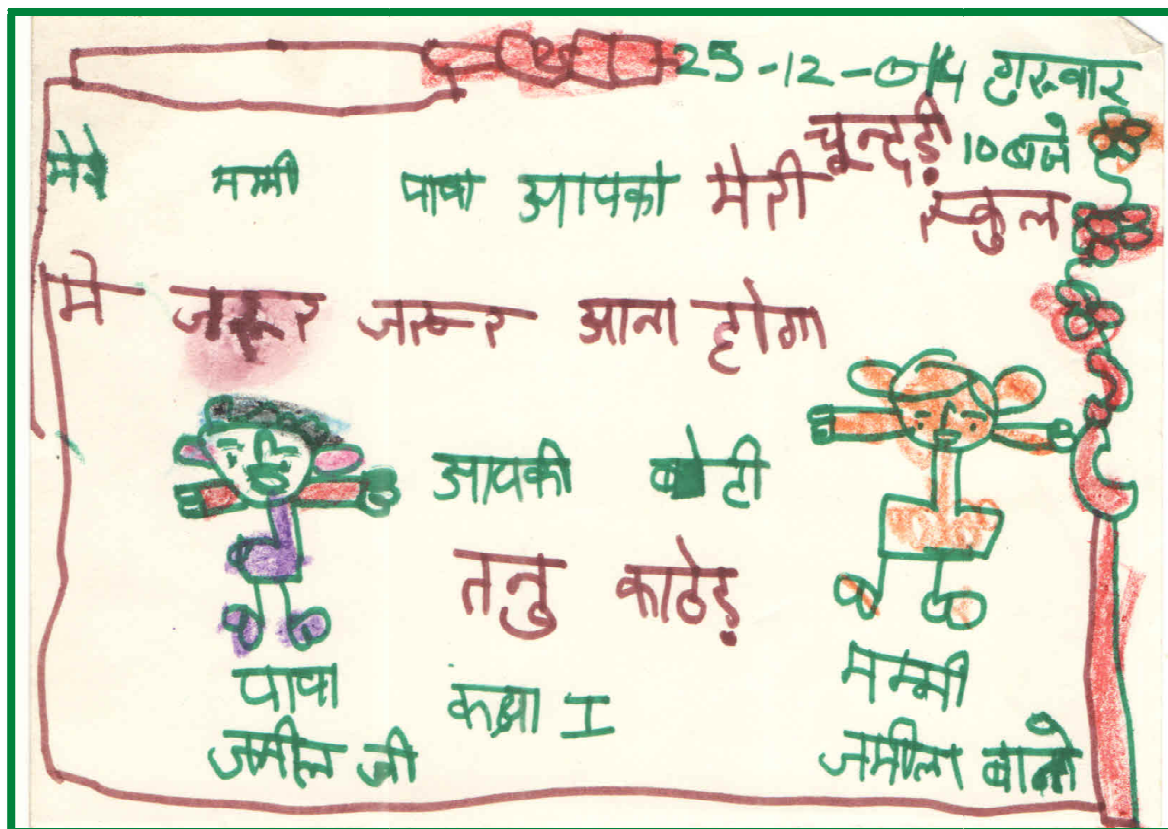 25-12-014 गुरूवार
चून्दड़ी 10 बजे
मेरे मम्मी पापा आपको मेरी स्कुल
मे जरूर जरूर आना होगा
आपकी बेटी
तनु काठेड़
कक्षा I
पापा
जमील जी
मम्मी
जमीला बानो